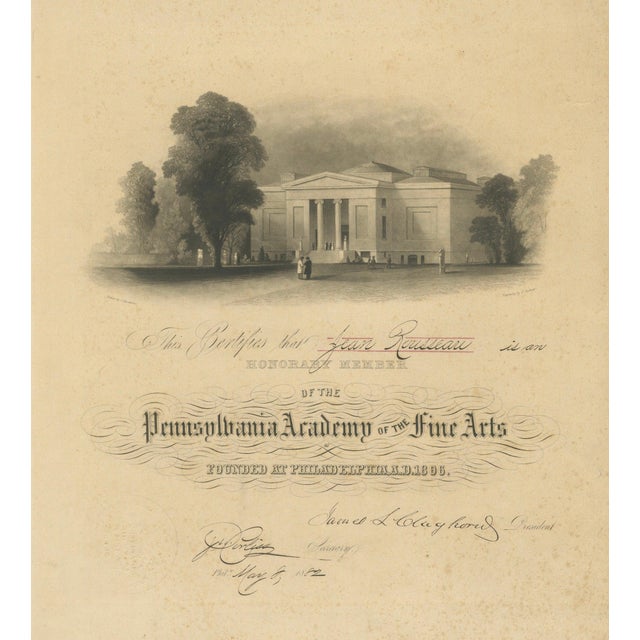 This Certifies that Jean Rousseau is an
HONORARY MEMBER
OF THE
Pennsylvania Academy OF THE Fine Arts
FOUNDED AT PHILADELPHIA A.D. 1806.
President
Secretary
May 8, 1882